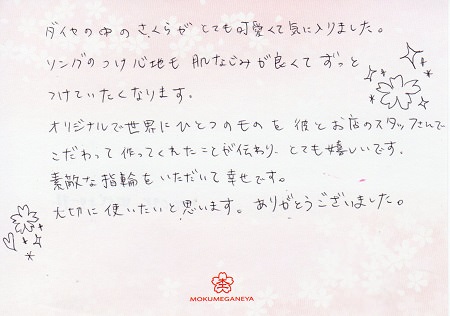 ダイヤの中のさくらがとても可愛くて気に入りました。
リングのつけ心地も肌なじみが良くてずっと
つけていたくなります。
オリジナルで世界にひとつのものを彼とお店のスタッフさんで
こだわって作ってくれたことが伝わり、とても嬉しいです。
素敵な指輪をいただいて幸せです。
大切に使いたいと思います。ありがとうございました。
MOKUMEGANEYA